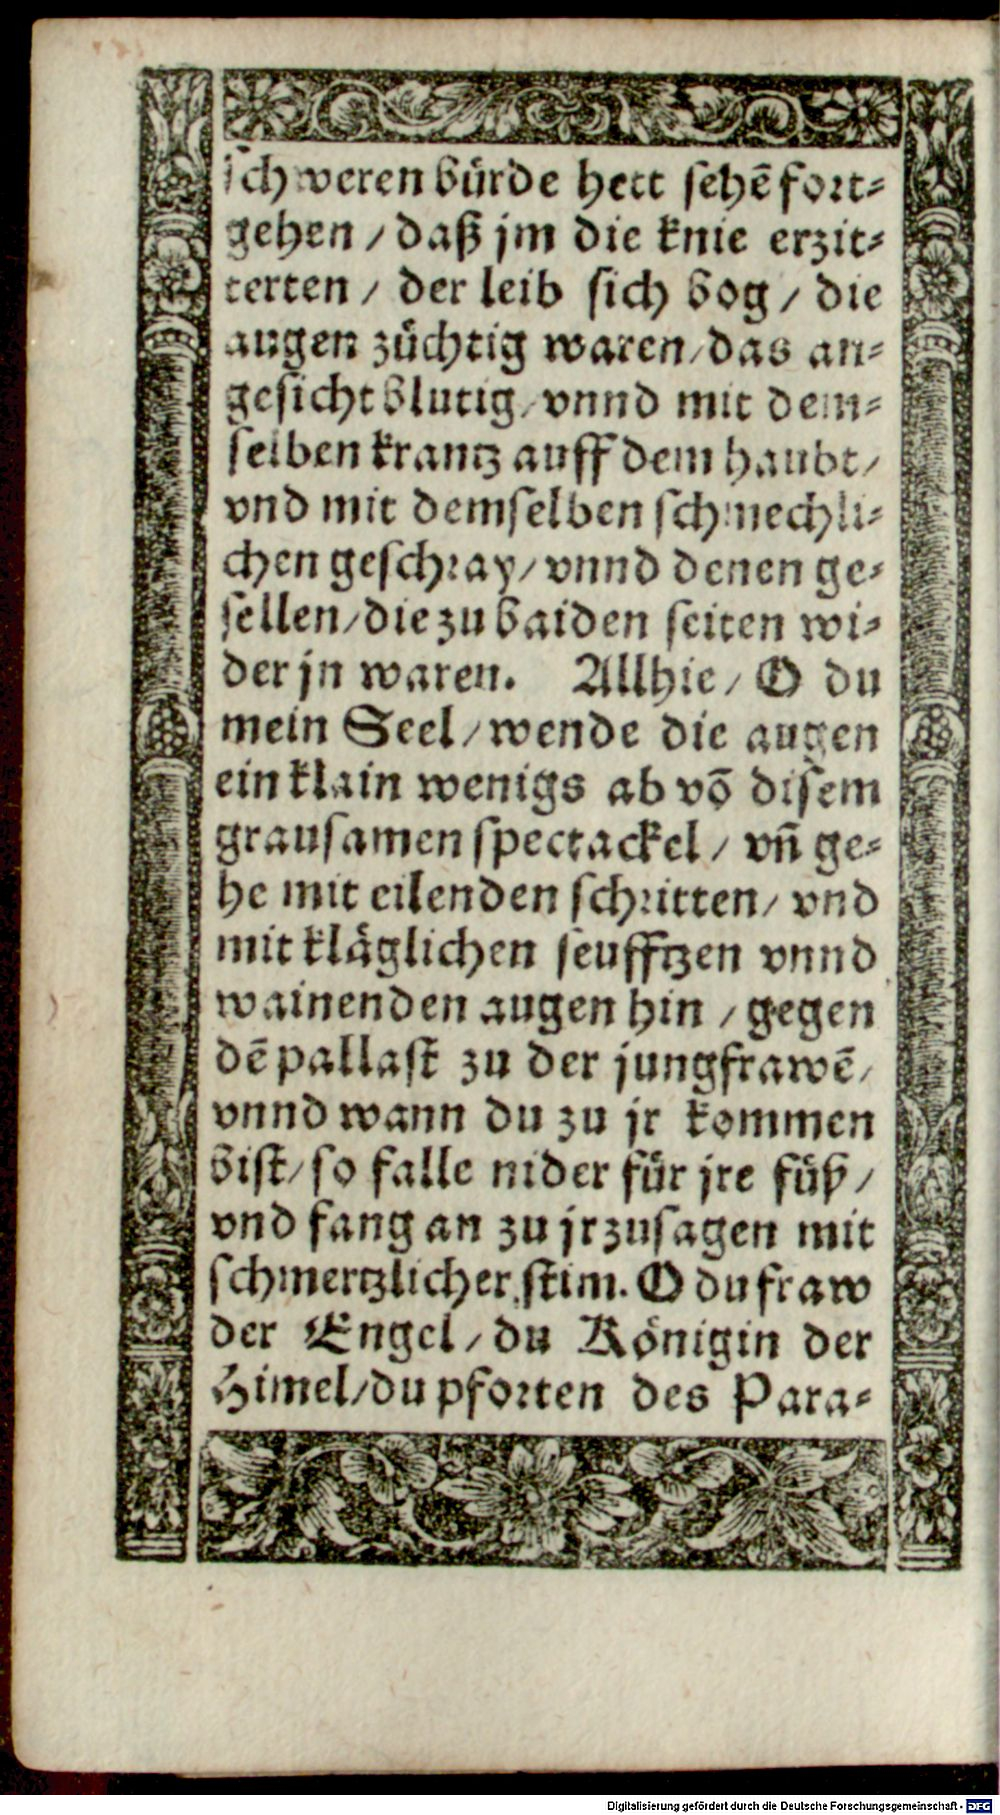 schweren bürde hett sehē fort⸗
gehen / daß jm die knie erzit⸗
terten / der leib sich bog / die
augen züchtig waren / das an⸗
gesicht blutig / vnnd mit dem⸗
selben krantz auff dem haubt /
vnd mit demselben schmechli⸗
chen geschray / vnnd denen ge⸗
sellen / die zu baiden seiten wi⸗
der jn waren. Allhie / O du
mein Seel / wende die augen
ein klain wenigs ab vō disem
grausamen spectackel / vn̄ ge⸗
he mit eilenden schritten / vnd
mit kläglichen seufftzen vnnd
wainenden augen hin / gegen
dē pallast zu der jungfrawē /
vnnd wann du zu jr kommen
bist / so falle nider für jre füß /
vnd fang an zu jr zusagen mit
schmertzlicher stim. O du fraw
der Engel / du Königin der
Himel / du pforten des Para⸗
Digitalisierung gefördert durch die Deutsche Forschungsgemeinschaft - DFG